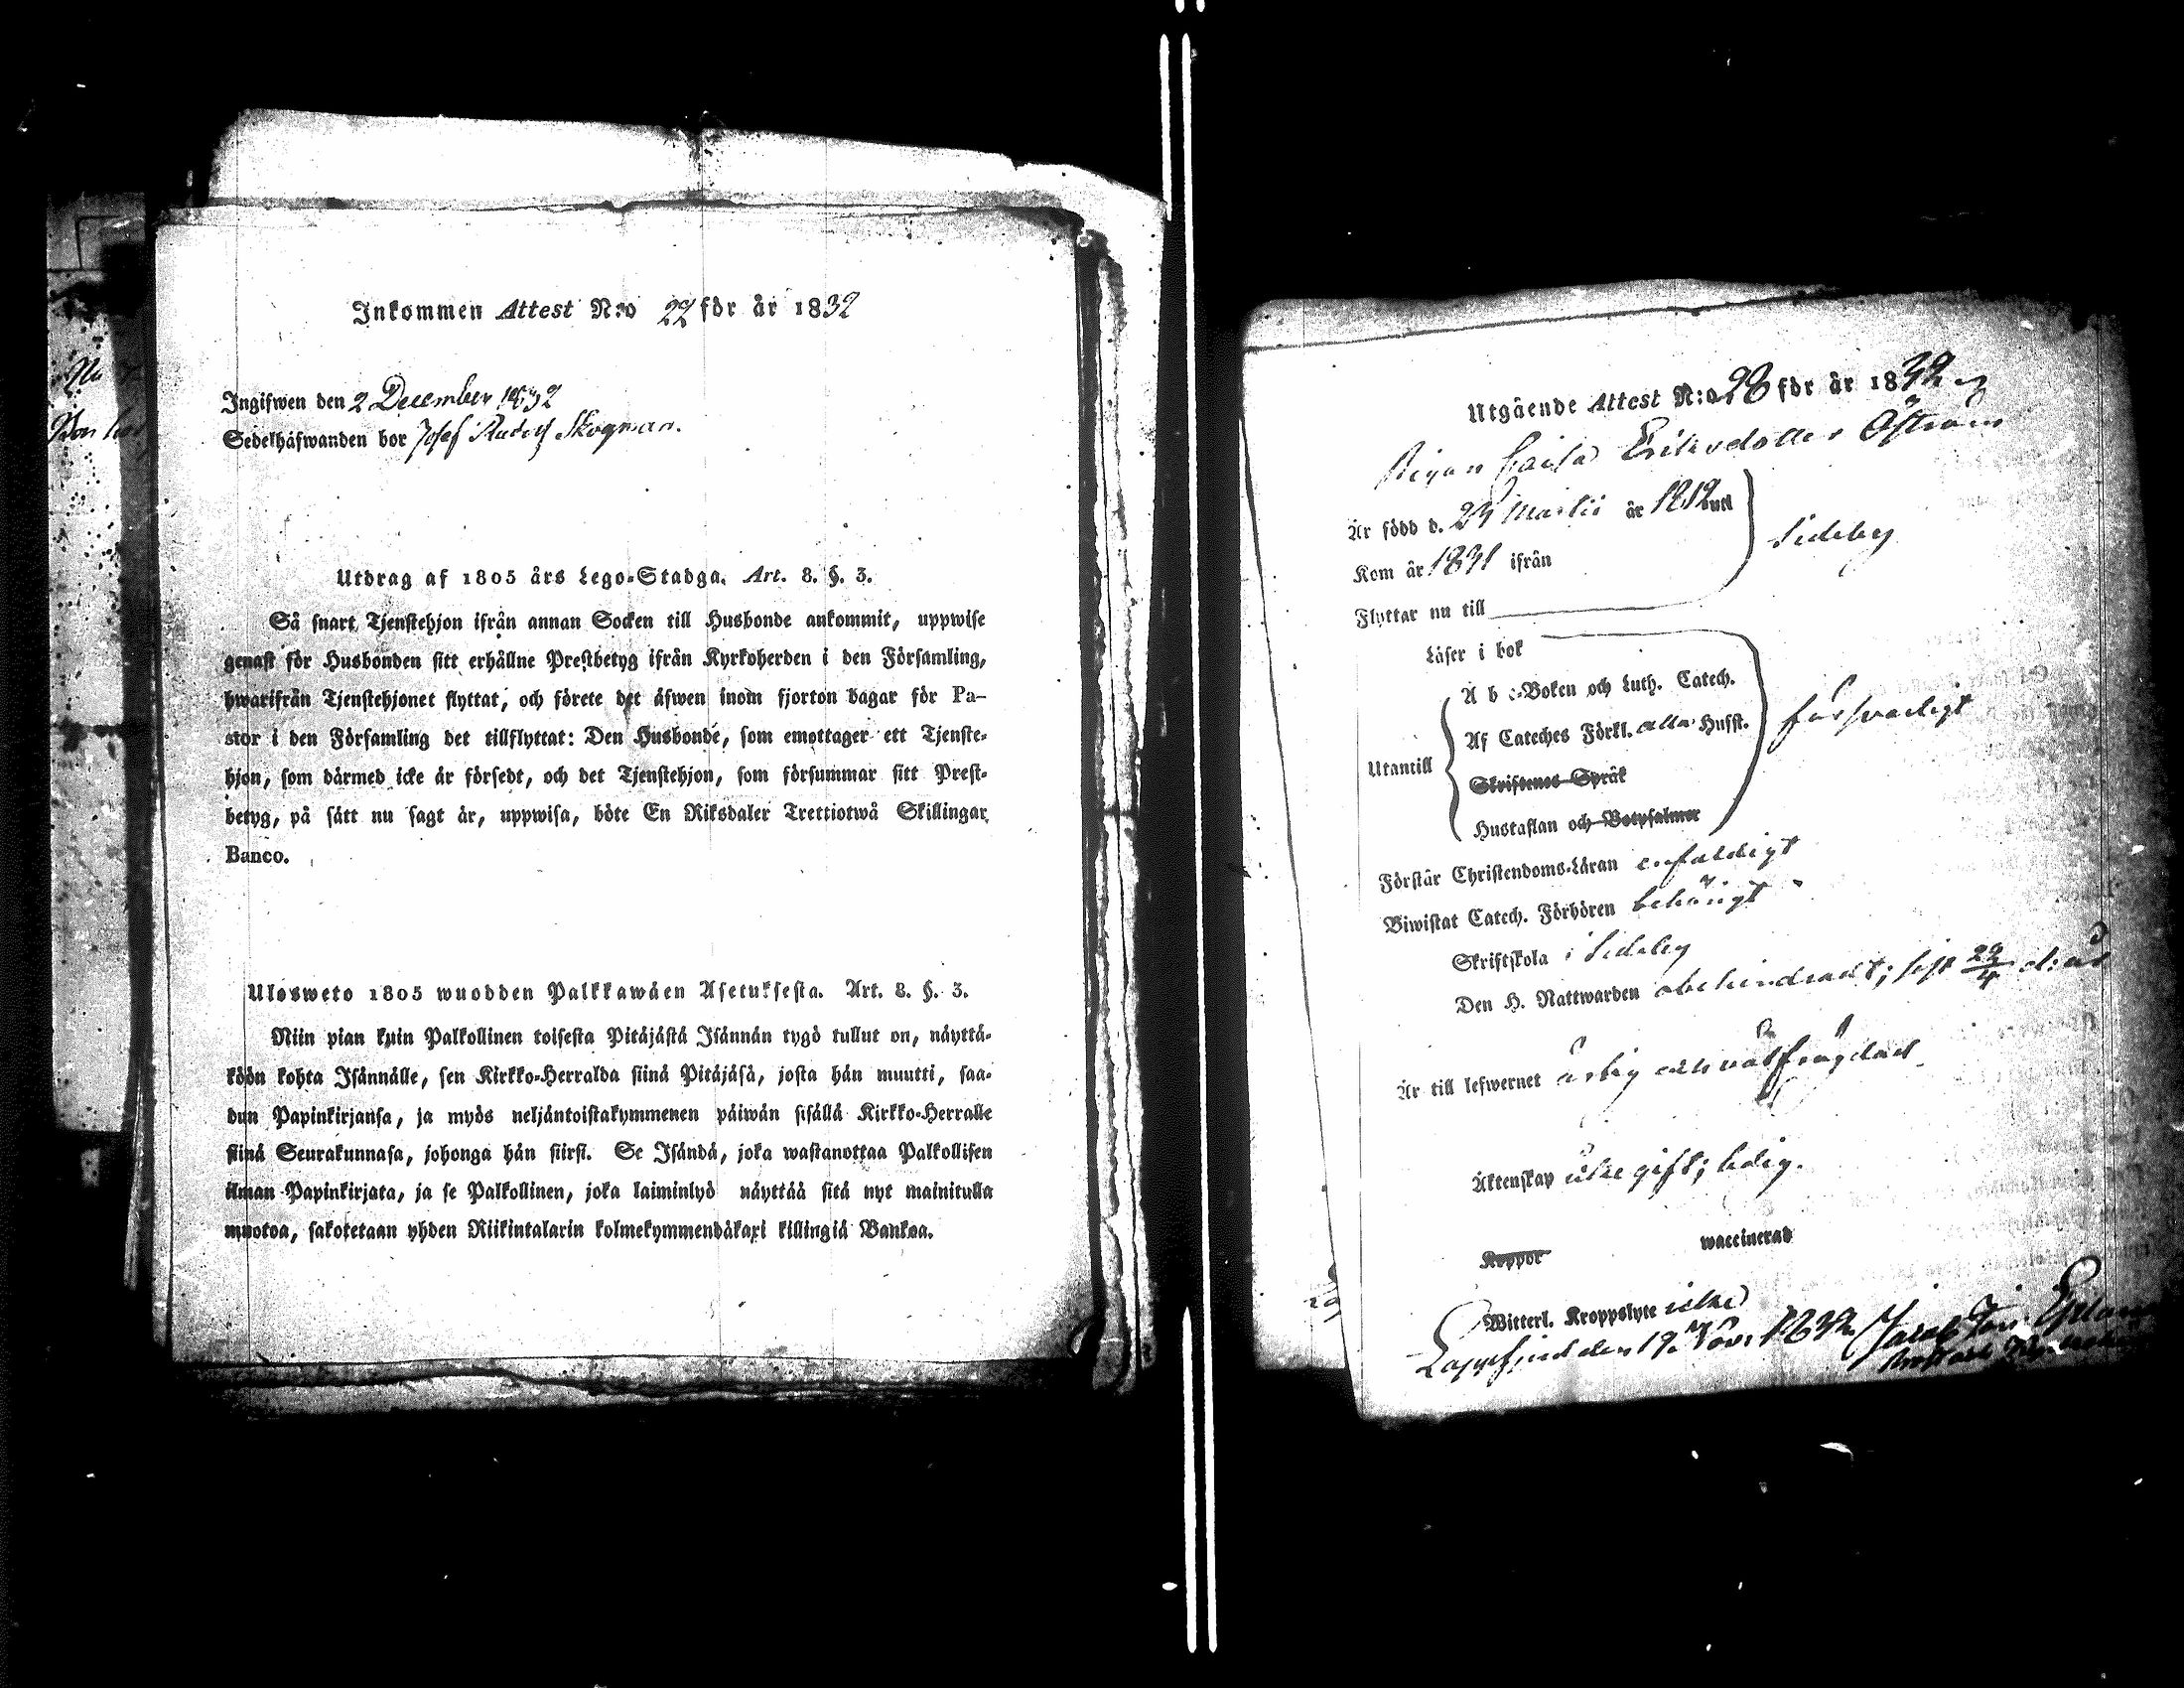 Inkommen Attest N:o 22 för år 1832
Ingifwen den 2 December 1832
Sedelhåfwanden bor Josef Rudolf Skogman.
Utdrag af 1805 års Lego-Stadga. Art. 8. §. 3.
Så snart Tjenstehjon ifrån annan Socken till Husbonde ankommit, uppwise
genast för Husbonden sitt erhållne Prestbetyg ifrån Kyrkoherden i den Församling,
hwarifrån Tjenstehjonet flyttat, och förete det äfwen inom fjorton dagar för Pa-
stor i den Församling det tillflyttat: Den Husbonde, som emottager ett Tjenste-
hjon, som dårmed icke är försedt, och det Tjenstehjon, som försummar sitt Prest-
betyg, på sätt nu sagt är, uppwisa, böte En Riksdaler Trettiotwå Skillingar
Banco.
Ulosweto 1805 wuodden Palkkawäen Asetuksesta. Art. 8. §. 3.
Niin pian kuin Palkollinen toisesta Pitäjästä Isännän tygö tullut on, näyttä-
köön kohta Isännälle, sen Kirkko-Herralda siinä Pitäjäsä, josta hän muutti, saa-
dun Papinkirjansa, ja myös neljäntoistakymmenen päiwän sisällä Kirkko-Herralle
siinä Seurakunnasa, johonga hän siirsi. Se Isändä, joka wastanottaa Palkollisen
ilman Papinkirjata, ja se Palkollinen, joka laiminlyö näyttää sitä nyt mainitulla
muotoa, sakotetaan yhden Riikintalarin kolmekymmendäkaxi killingiä Bankoa.
Utgående Attest N:o 28 för år 1832
Pigan Caisa Eriksdotter Öström
Är född d. 24 Martii år 1812 uti
Kom år 1831 ifrån
Sideby
Flyttar nu till
Läser i bok
A b c-Boken och Luth. Catech.
Af Cateches Förkl. alla Hufst.
försvarligt
Utantill
Skriftenes Språk
Hustaflan och Botpsalmer
Förstår Christendoms-Läran enfaldigt
Biwistat Catech. Förhören behörigt
Skriftskola i Sideby
Den H. Nattwarden obehindradt; sist 23/4 d: år
Är till lefwernet ärlig och välfrägdad
Äktenskap icke gift; ledig.
Koppor waccinerad
Witterl. Kroppslyte icke
Lappfjerd den 19 Nov: 1832 Jacob